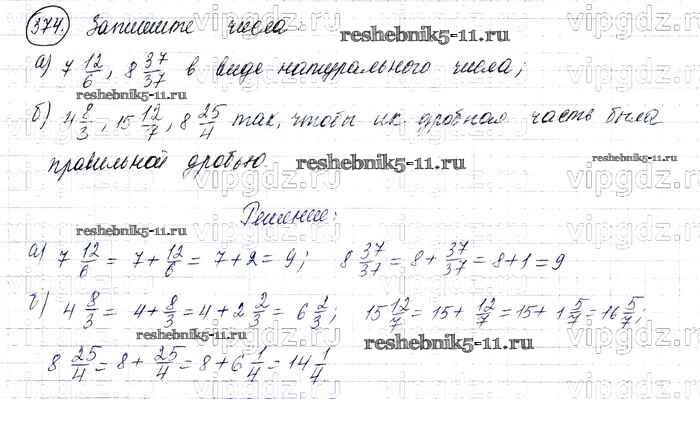 374. Запишите числа: reshebnik5-11.ru
а) 7 12/6, 8 37/37 в виде натурального числа;
reshebnik5-11.ru
б) 4 8/3, 15 12/7, 8 25/4 так, чтобы их дробная часть была
правильной дробью. reshebnik5-11.ru reshebnik5-11.ru
vipgdz.ru
reshebnik5-11.ru
Решение:
а) 7 12/6 = 7 + 12/6 = 7 + 2 = 9; 8 37/37 = 8 + 37/37 = 8 + 1 = 9
б) 4 8/3 = 4 + 8/3 = 4 + 2 2/3 = 6 2/3; 15 12/7 = 15 + 12/7 = 15 + 1 5/7 = 16 5/7;
reshebnik5-11.ru reshebnik5-11.ru
8 25/4 = 8 + 25/4 = 8 + 6 1/4 = 14 1/4